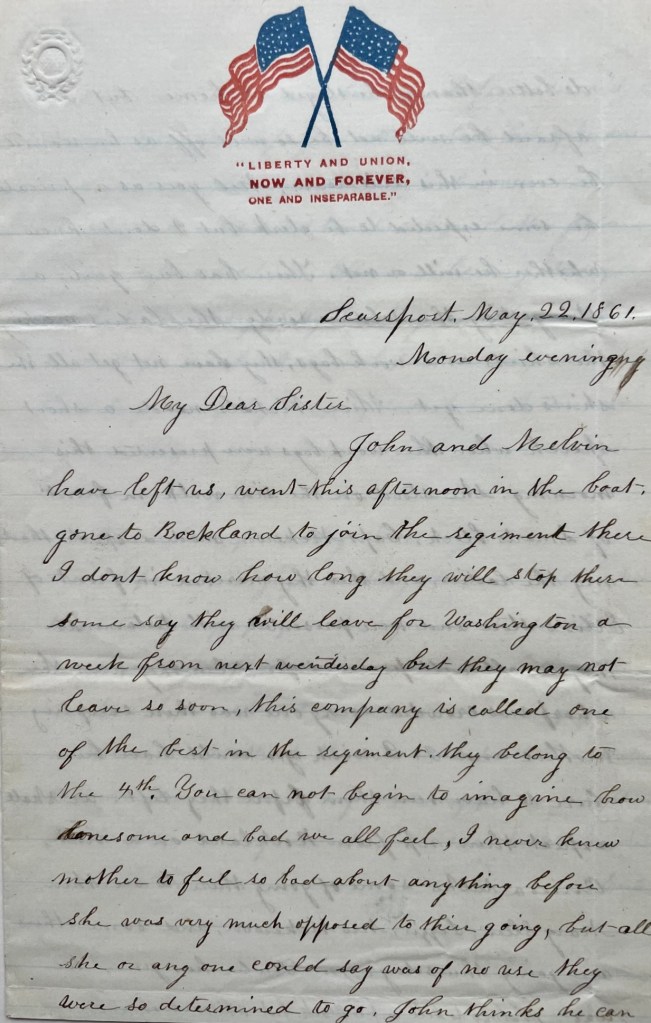 "LIBERTY AND UNION,
NOW AND FOREVER,
ONE AND INSEPARABLE."
Searsport. May. 22. 1861.
Monday evening
My Dear Sister
John and Melvin
have left us, went this afternoon in the boat.
gone to Rockland to join the regiment there
I dont know how long they will stop there
some say they will leave for Washington a
week from next wendesday but they may not
leave so soon, this company is called one
of the best in the regiment. they belong to
the 4th. You can not begin to imagine how
lonesome and bad we all feel, I never knew
mother to feel so bad about anything before
she was very much opposed to their going, but all
she or any one could say was of no use they
were so determined to go. John thinks he can